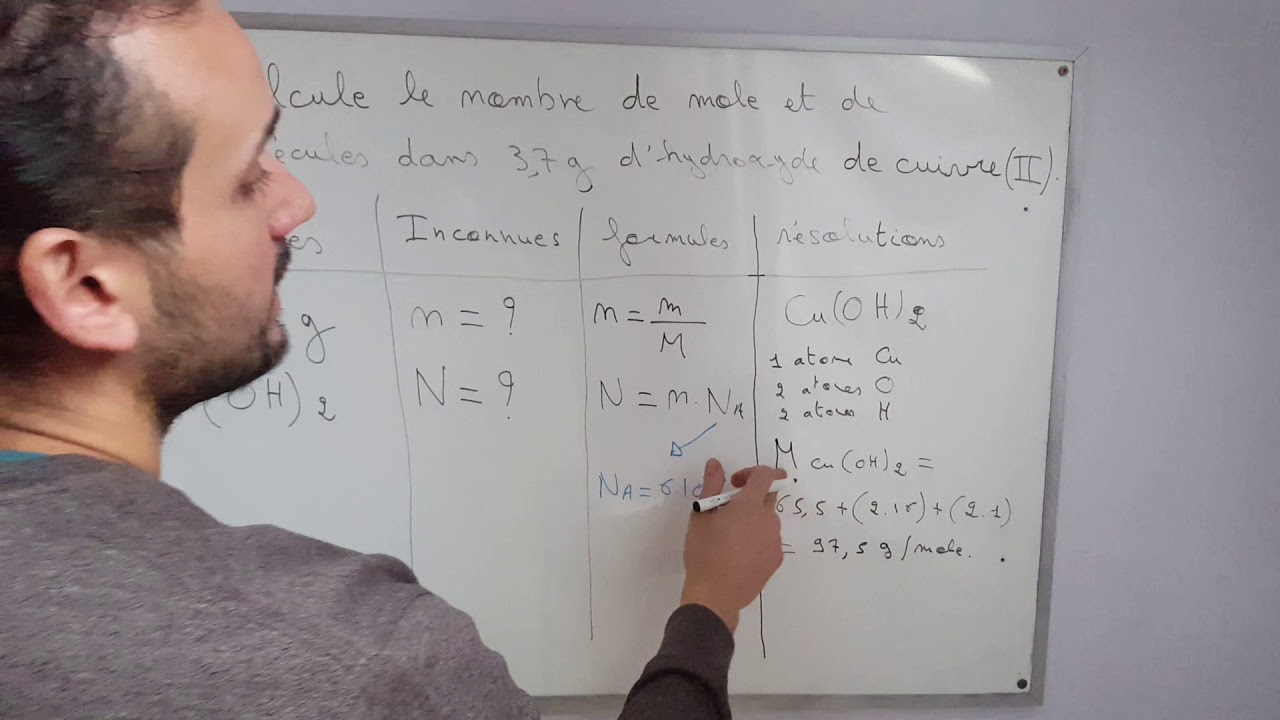 lcule le nombre de mole et de
écules dans 3,7 g d'hydroxyde de cuivre (II).
es
Inconnues
formules
résolutions
g
(OH)2
n = ?
N = ?
n = m/M
N = n. NA
NA = 6.10
Cu(OH)2
1 atome Cu
2 atomes O
2 atomes H
M Cu(OH)2 =
65,5 + (2.16) + (2.1)
= 97,5 g/mole.